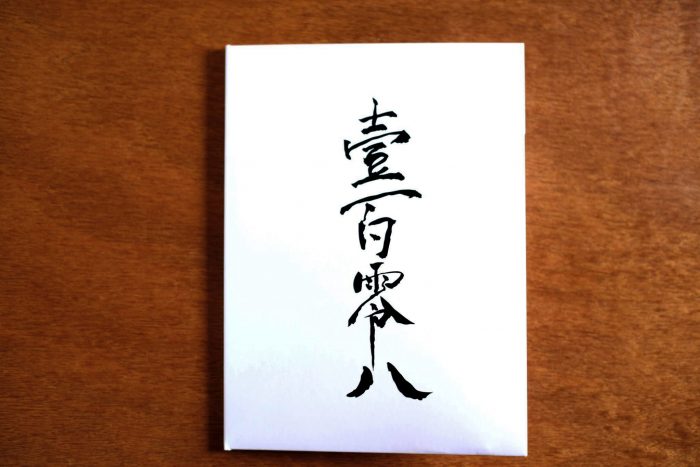 壹百零八